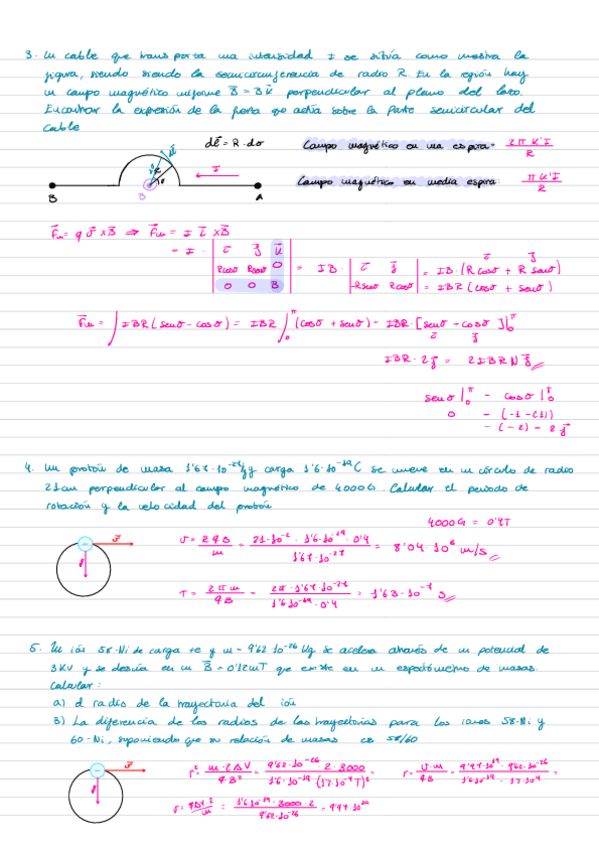 3. Un cable que transporta una intensidad I se sitúa como muestra la
figura, siendo siendo la semicircunferencia de radio R. En la región hay
un campo magnético uniforme B = Bk perpendicular al plano del
Encontrar la expresión de la fuerza que actúa sobre la parte semicircular del
cable
dl = R·dσ
Campo magnético en una espira = 2πK'I/R
I
Campo magnético en media espira: πK'I/R
B A
Fm = q v × B ⇒ Fm = I l × B
= I · | i j k | Rcosσ Rsenσ 0 | 0 0 B | = IB · | i j | -Rsenσ Rcosσ | = IB·(Rcosσ + Rsenσ)
= IBR(cosσ + senσ)
Fm = ∫ IBR(senσ - cosσ) = IBR ∫₀^π (cosσ + senσ) = IBR·[senσ - cosσ]₀^π
IBR·2j = 2IBR N j
senσ|₀^π - cosσ|₀^π
0 - (-1-(1))
- (-2) = 2j
4. Un protón de masa 1'67·10⁻²⁷kg y carga 1'6·10⁻¹⁹C se mueve en un círculo de radio
21cm perpendicular al campo magnético de 4000G. Calcular el periodo de
rotación y la velocidad del protón
4000G = 0'4T
v = RqB/m = 21·10⁻²·1'6·10⁻¹⁹·0'4 / 1'67·10⁻²⁷ = 8'04·10⁶ m/s
T = 2πm/qB = 2π·1'67·10⁻²⁷ / 1'6·10⁻¹⁹·0'4 = 1'63·10⁻⁷ s
5. Un ión 58-Ni de carga +e y m = 9'62·10⁻²⁶ kg se acelera através de un potencial de
3KV y se desvía en un B = 0'12mT que existe en un espectrómetro de masas.
Calcular:
a) el radio de la trayectoria del ión
b) La diferencia de los radios de las trayectorias para los iones 58-Ni y
60-Ni, suponiendo que su relación de masas es 58/60
r² = m·2ΔV/qB² = 9'62·10⁻²⁶·2·3000
r = v·m/qB
v = qΔV·2/m = 1'6·10⁻¹⁹·3000·2 / 9'62·10⁻²⁶